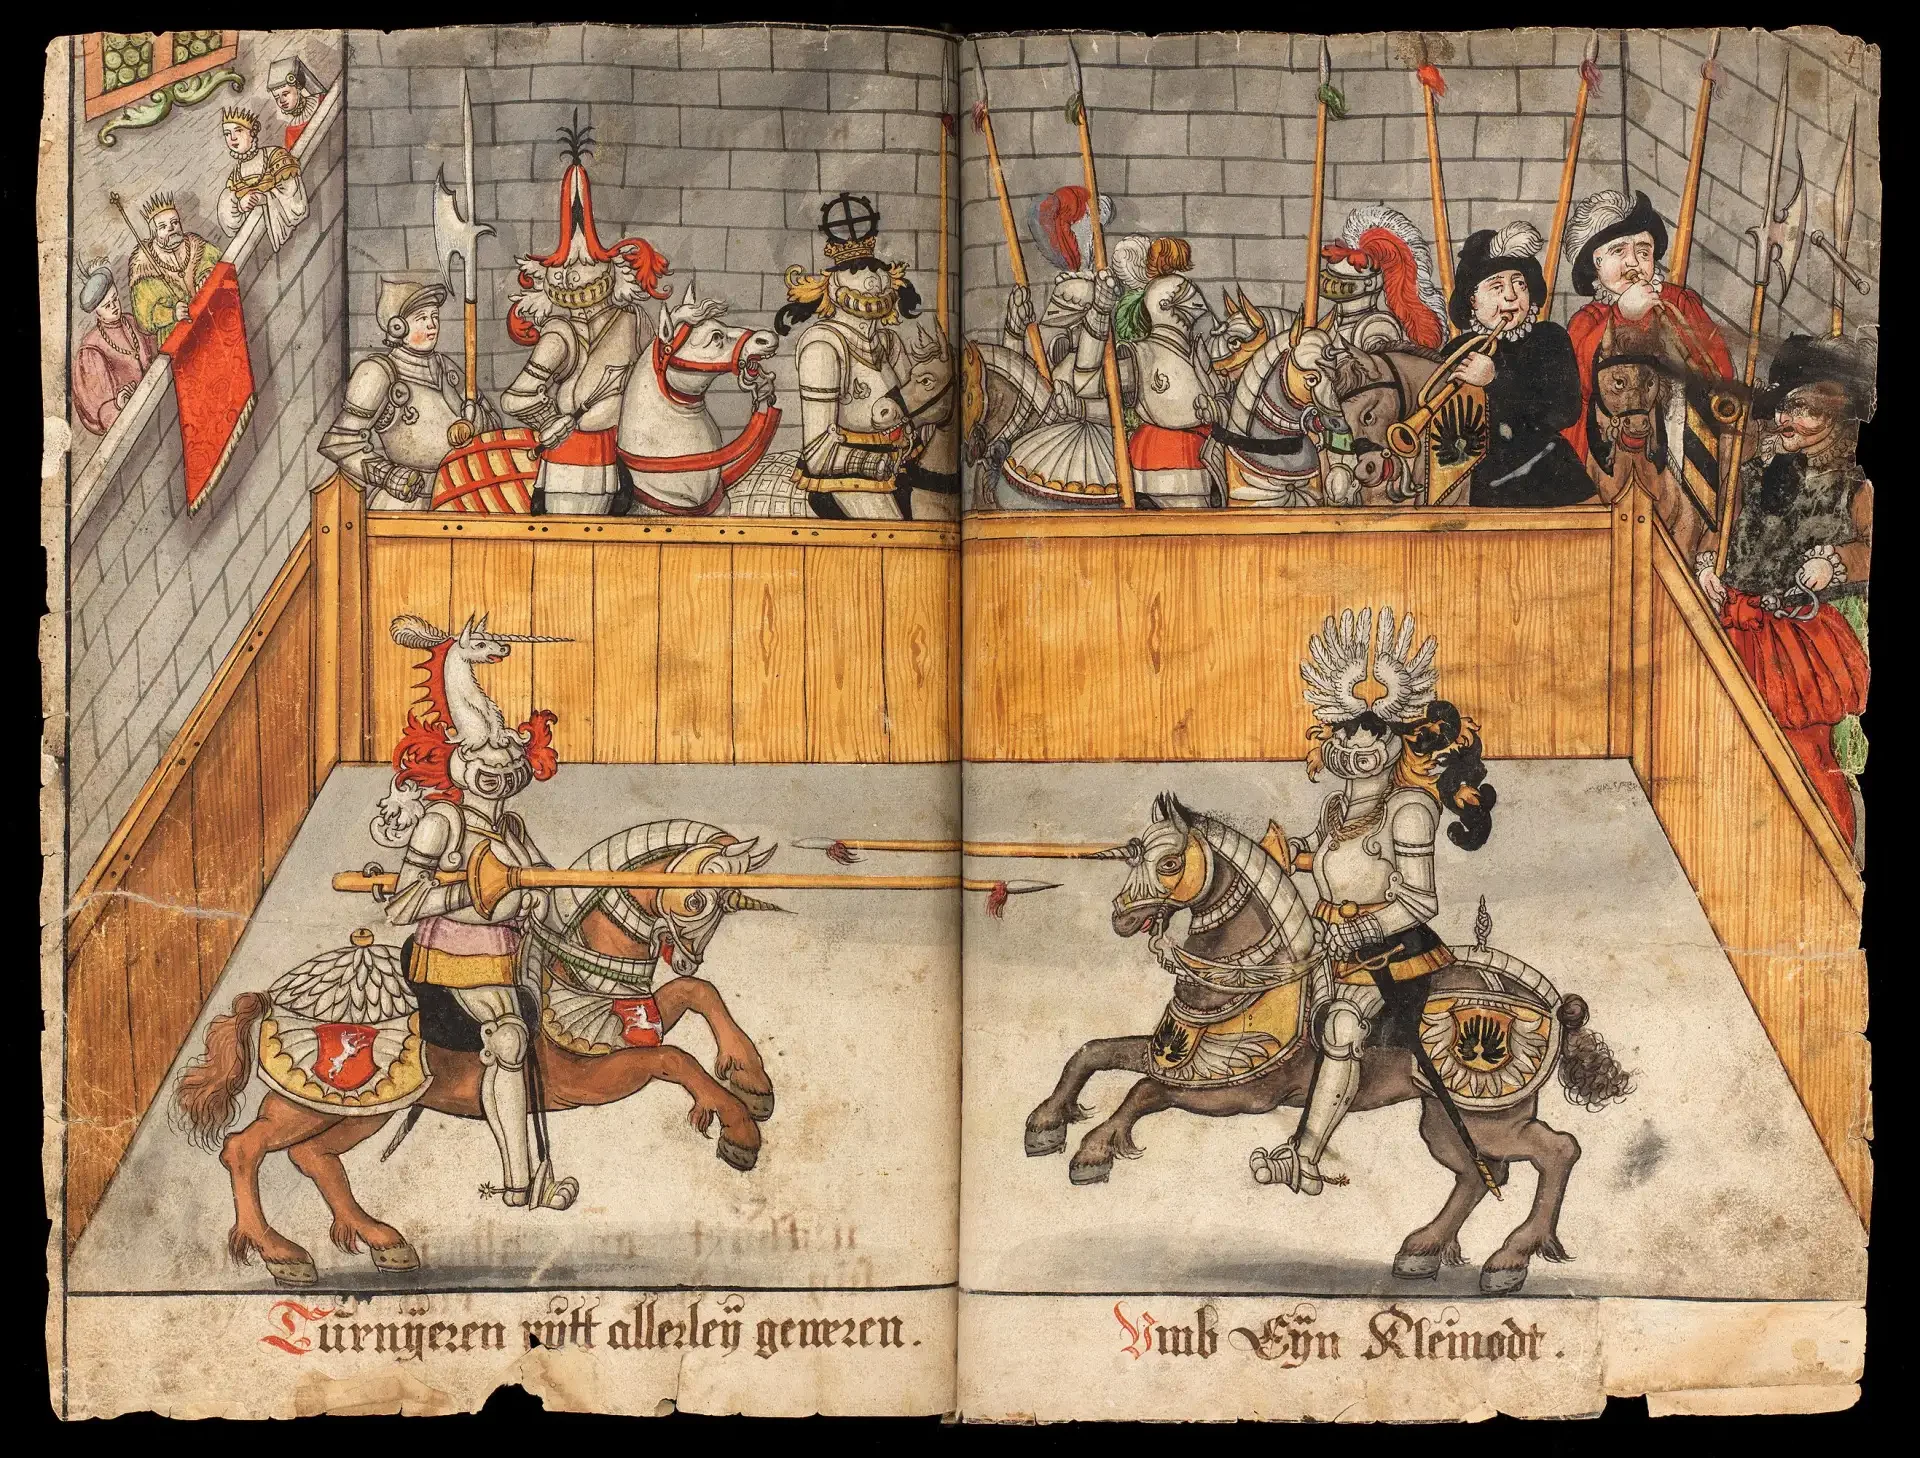 Turnÿeren mitt allerleÿ geweren.
Vmb Eÿn Kleinodt.